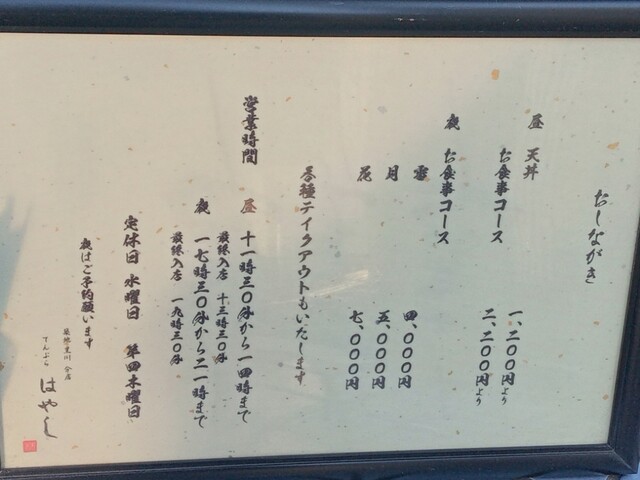 おしながき
昼 天丼 一、二〇〇円より
お食事コース 二、二〇〇円より
夜 お食事コース
雪 四、〇〇〇円
月 五、〇〇〇円
花 七、〇〇〇円
各種テイクアウトもいたします
営業時間 昼 十一時三〇分から一四時まで
最終入店 十三時三〇分
夜 一七時三〇分から二一時まで
最終入店 一九時三〇分
定休日 水曜日 第四木曜日
夜はご予約願います
分店
てんぷら はやし